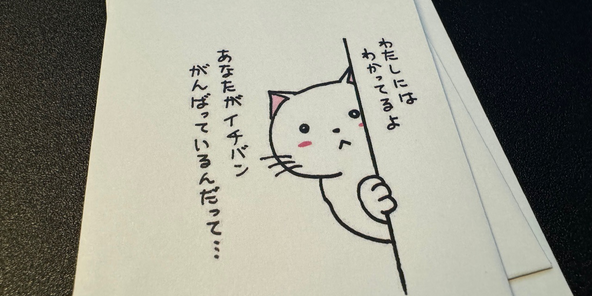 わたしには
わかってるよ
あなたがイチバン
がんばっているんだって…